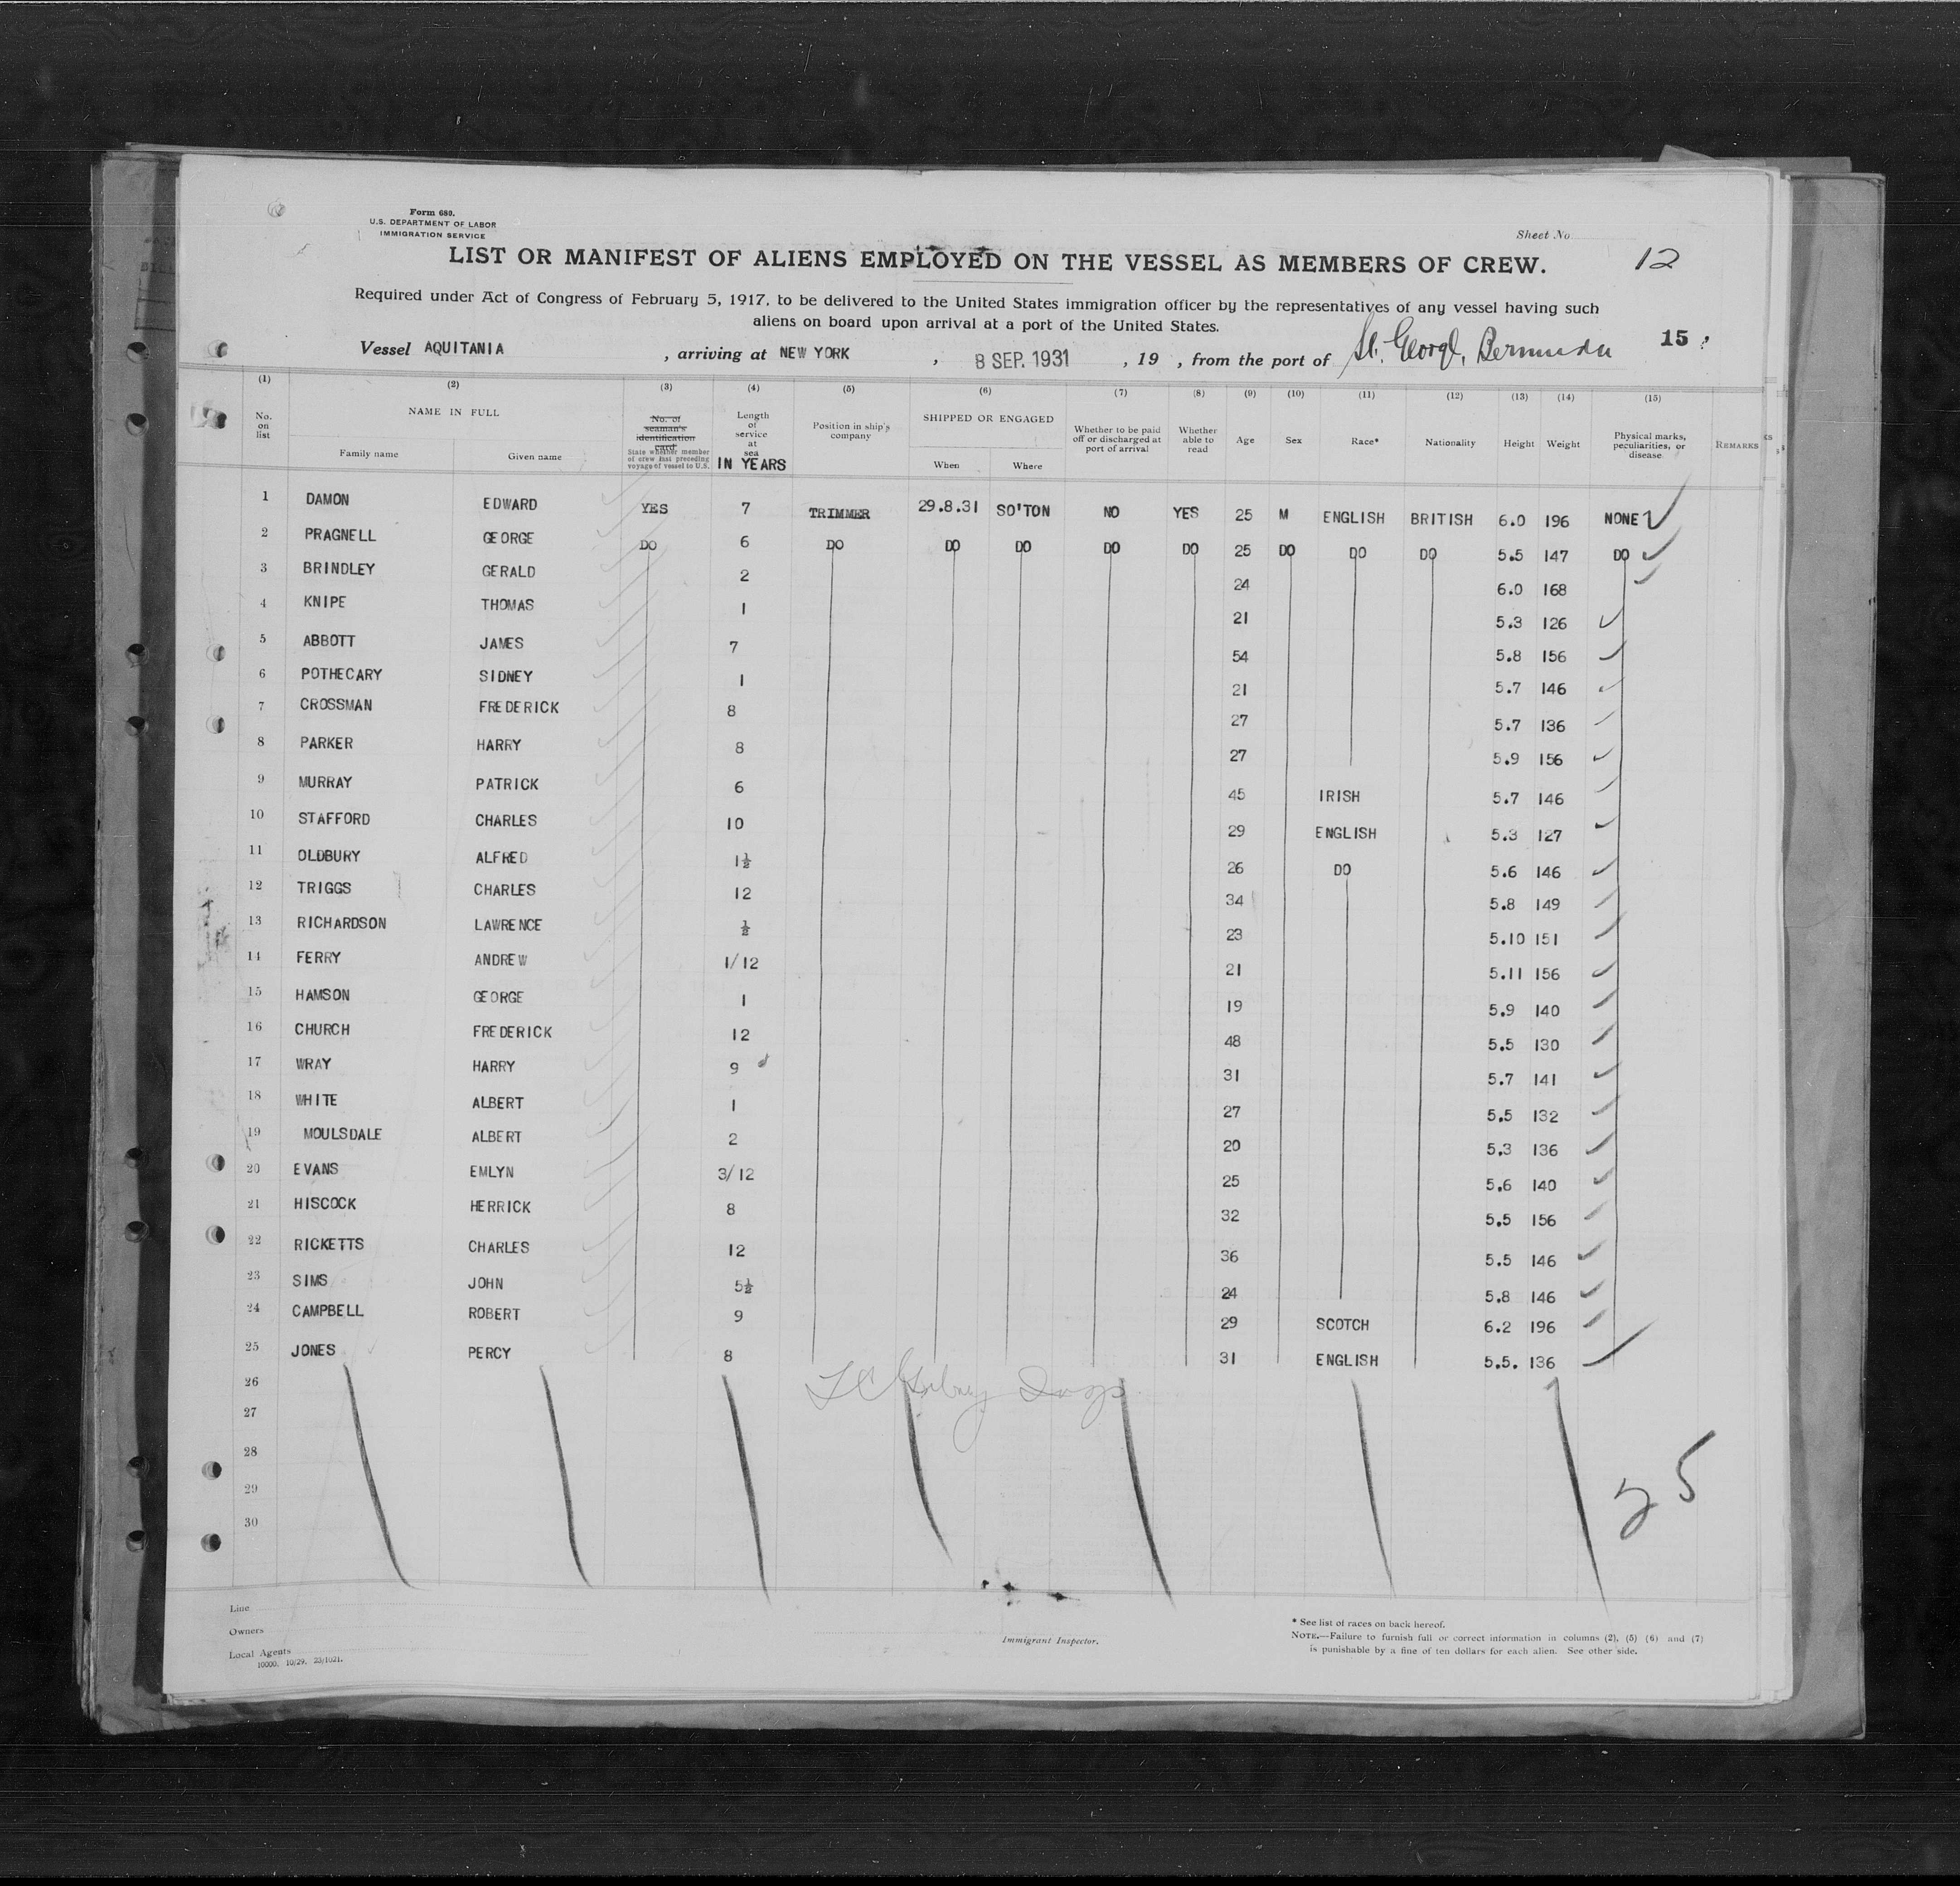 Form 680.
U.S. DEPARTMENT OF LABOR
IMMIGRATION SERVICE
Sheet No.
12
LIST OR MANIFEST OF ALIENS EMPLOYED ON THE VESSEL AS MEMBERS OF CREW.
Required under Act of Congress of February 5, 1917, to be delivered to the United States immigration officer by the representatives of any vessel having such
aliens on board upon arrival at a port of the United States.
15
Vessel AQUITANIA , arriving at NEW YORK , 8 SEP. 1931 , 19 , from the port of St. George, Bermuda
(1) (2) (3) (4) (5) (6) (7) (8) (9) (10) (11) (12) (13) (14) (15)
No. on list
NAME IN FULL
Family name Given name
No. of seaman's identification card
State whether member of crew last preceding voyage of vessel to U.S.
Length of service at sea
IN YEARS
Position in ship's company
SHIPPED OR ENGAGED
When Where
Whether to be paid off or discharged at port of arrival
Whether able to read
Age Sex Race* Nationality Height Weight
Physical marks, peculiarities, or disease
REMARKS
1 DAMON EDWARD YES 7 TRIMMER 29.8.31 SO'TON NO YES 25 M ENGLISH BRITISH 6.0 196 NONE
2 PRAGNELL GEORGE DO 6 DO DO DO DO DO 25 DO DO DO 5.5 147 DO
3 BRINDLEY GERALD 2 24 6.0 168
4 KNIPE THOMAS 1 21 5.3 126
5 ABBOTT JAMES 7 54 5.8 156
6 POTHECARY SIDNEY 1 21 5.7 146
7 CROSSMAN FREDERICK 8 27 5.7 136
8 PARKER HARRY 8 27 5.9 156
9 MURRAY PATRICK 6 45 IRISH 5.7 146
10 STAFFORD CHARLES 10 29 ENGLISH 5.3 127
11 OLDBURY ALFRED 1½ 26 DO 5.6 146
12 TRIGGS CHARLES 12 34 5.8 149
13 RICHARDSON LAWRENCE ½ 23 5.10 151
14 FERRY ANDREW 1/12 21 5.11 156
15 HAMSON GEORGE 1 19 5.9 140
16 CHURCH FREDERICK 12 48 5.5 130
17 WRAY HARRY 9 31 5.7 141
18 WHITE ALBERT 1 27 5.5 132
19 MOULSDALE ALBERT 2 20 5.3 136
20 EVANS EMLYN 3/12 25 5.6 140
21 HISCOCK HERRICK 8 32 5.5 156
22 RICKETTS CHARLES 12 36 5.5 146
23 SIMS JOHN 5½ 24 5.8 146
24 CAMPBELL ROBERT 9 29 SCOTCH 6.2 196
25 JONES PERCY 8 31 ENGLISH 5.5. 136
26
27
28
29
30
25
Line
Owners
Local Agents
10000. 10/29. 23/1021.
Immigrant Inspector.
* See list of races on back hereof.
NOTE.—Failure to furnish full or correct information in columns (2), (5) (6) and (7)
is punishable by a fine of ten dollars for each alien. See other side.